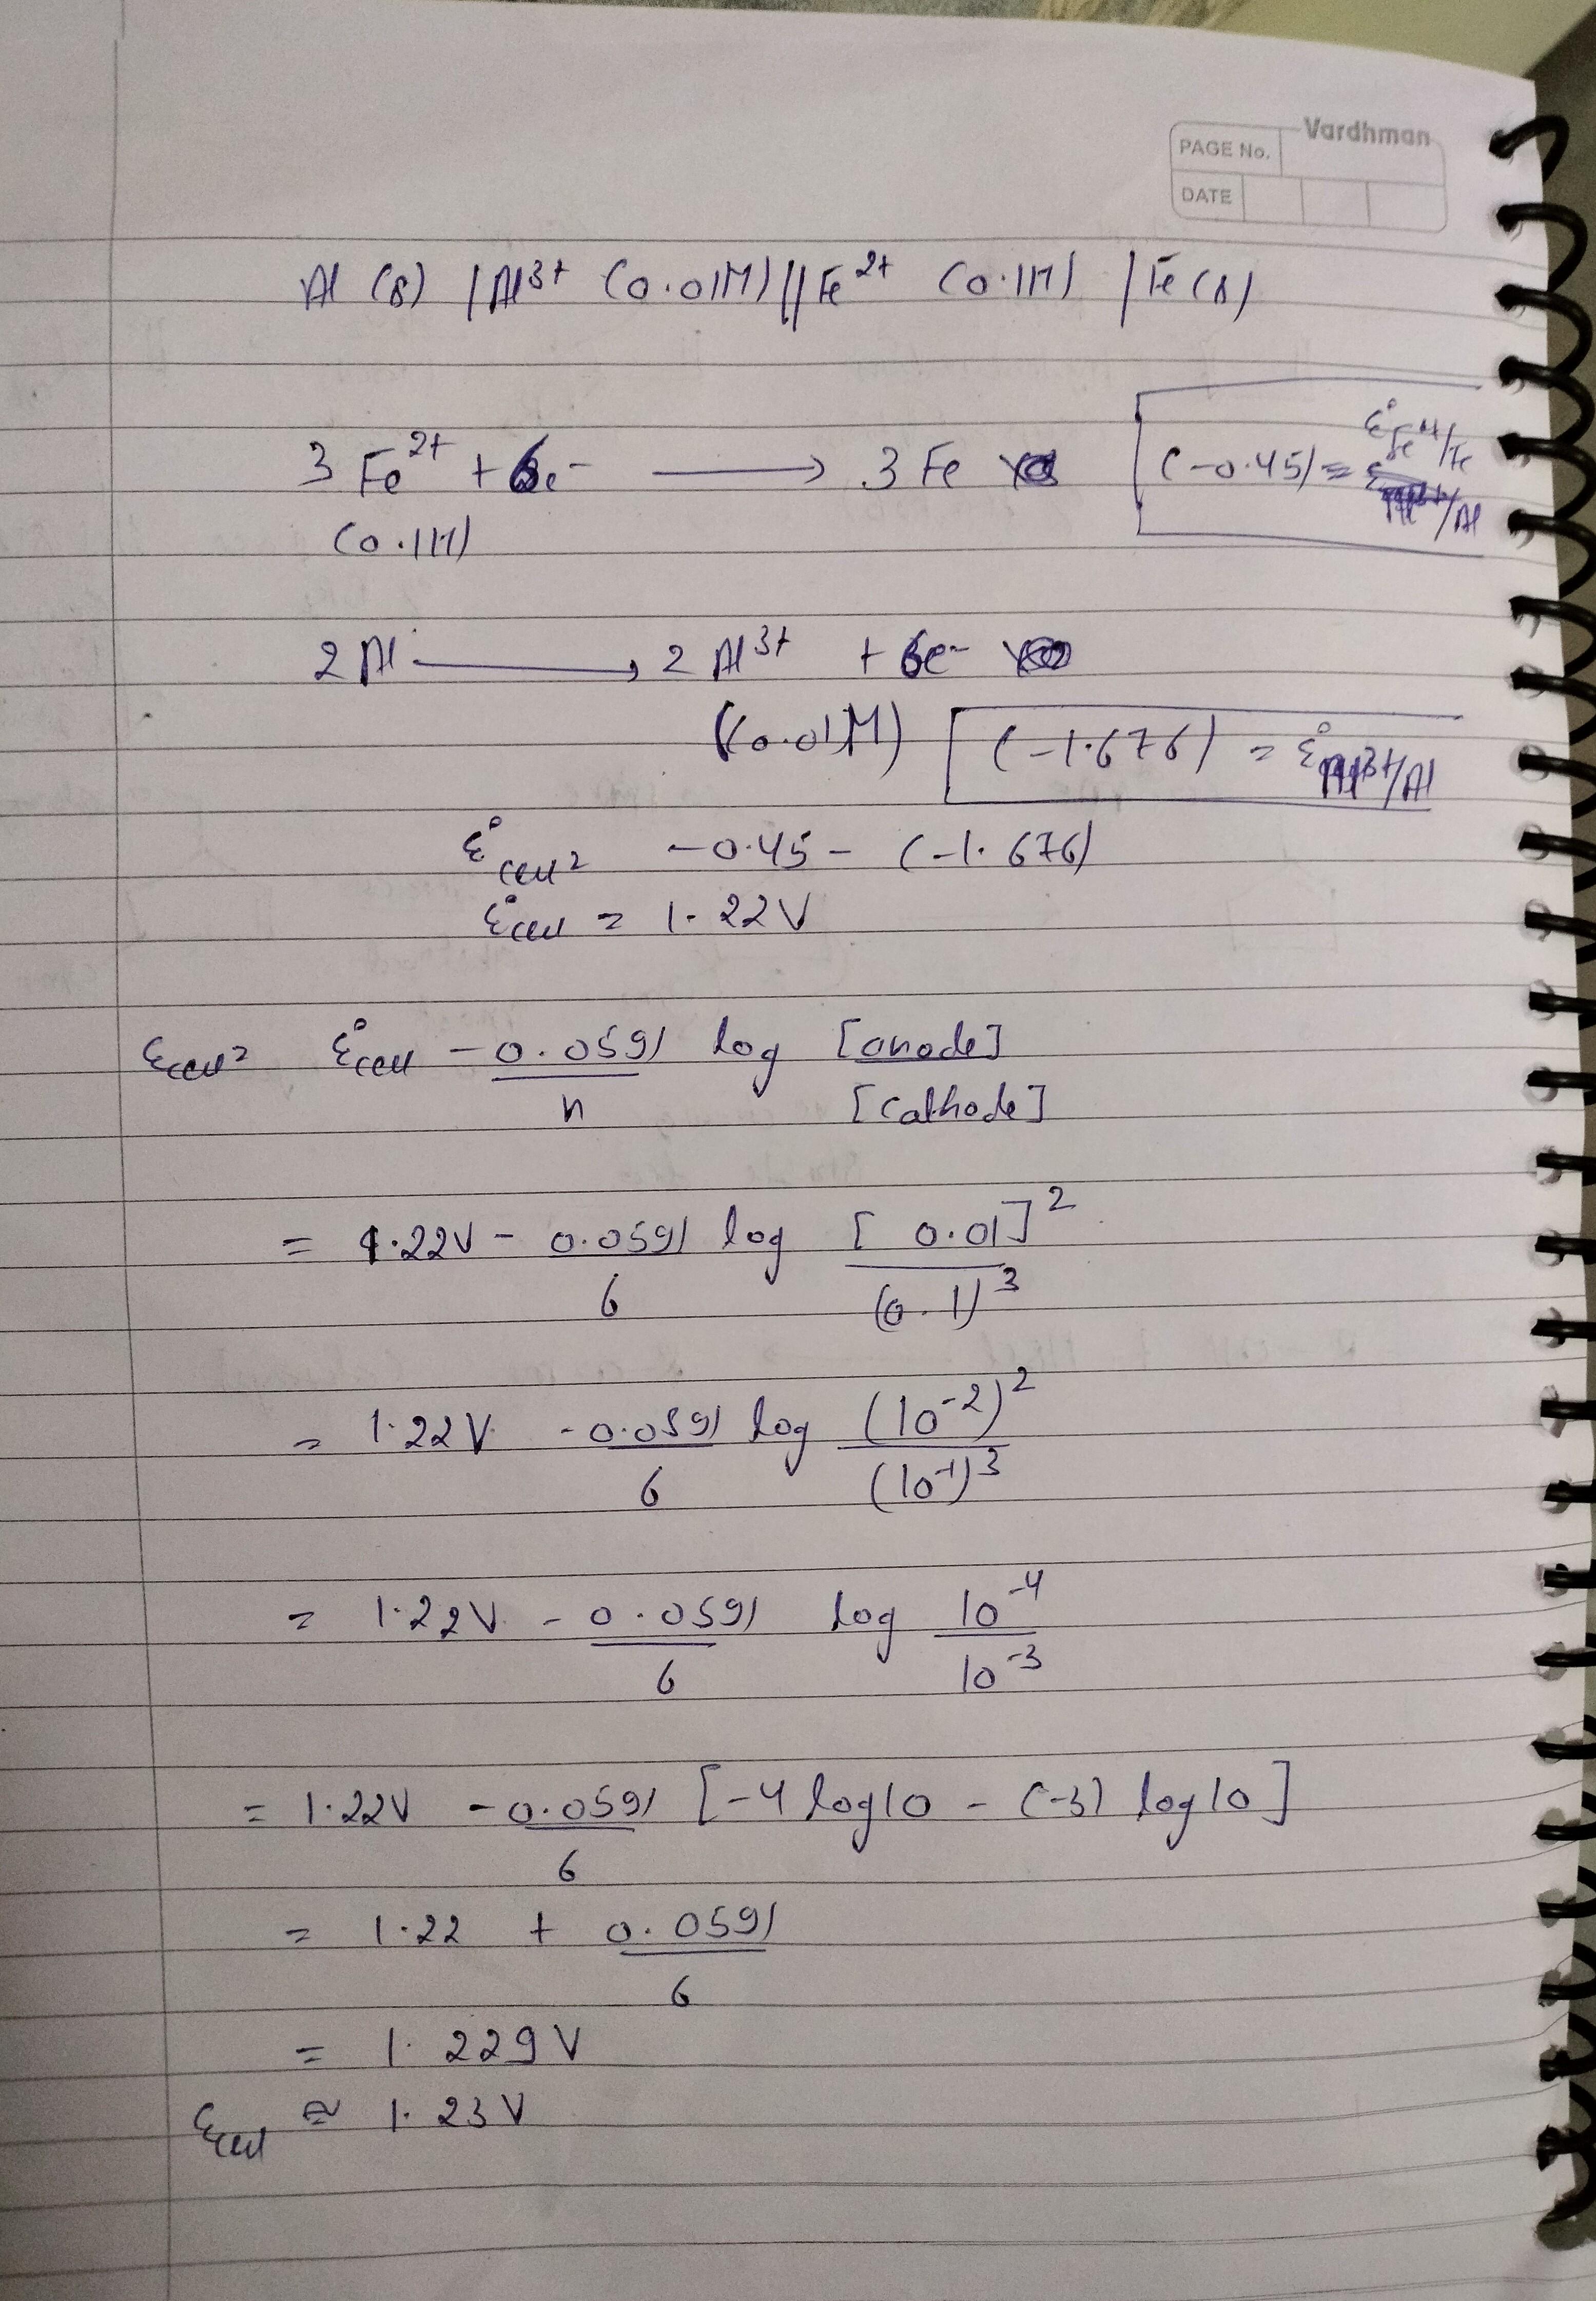 Vardhman
PAGE No.
DATE
Al (s) | Al³⁺ (0.01M) || Fe²⁺ (0.1M) | Fe (s)
3 Fe²⁺ + 6e⁻ ⟶ 3 Fe [(-0.45) = ε°Fe²⁺/Fe
(0.1M)
2 Al ⟶ 2 Al³⁺ + 6e⁻
(0.01M) [(-1.676) = ε°Al³⁺/Al
ε°cell = -0.45 - (-1.676)
ε°cell = 1.22V
εcell = ε°cell - 0.0591/n log [anode]/[cathode]
= 1.22V - 0.0591/6 log [0.01]²/(0.1)³
= 1.22V - 0.0591/6 log (10⁻²)²/(10⁻¹)³
= 1.22V - 0.0591/6 log 10⁻⁴/10⁻³
= 1.22V - 0.0591/6 [-4 log10 - (-3) log10]
= 1.22 + 0.0591/6
= 1.229V
εcell ≈ 1.23V